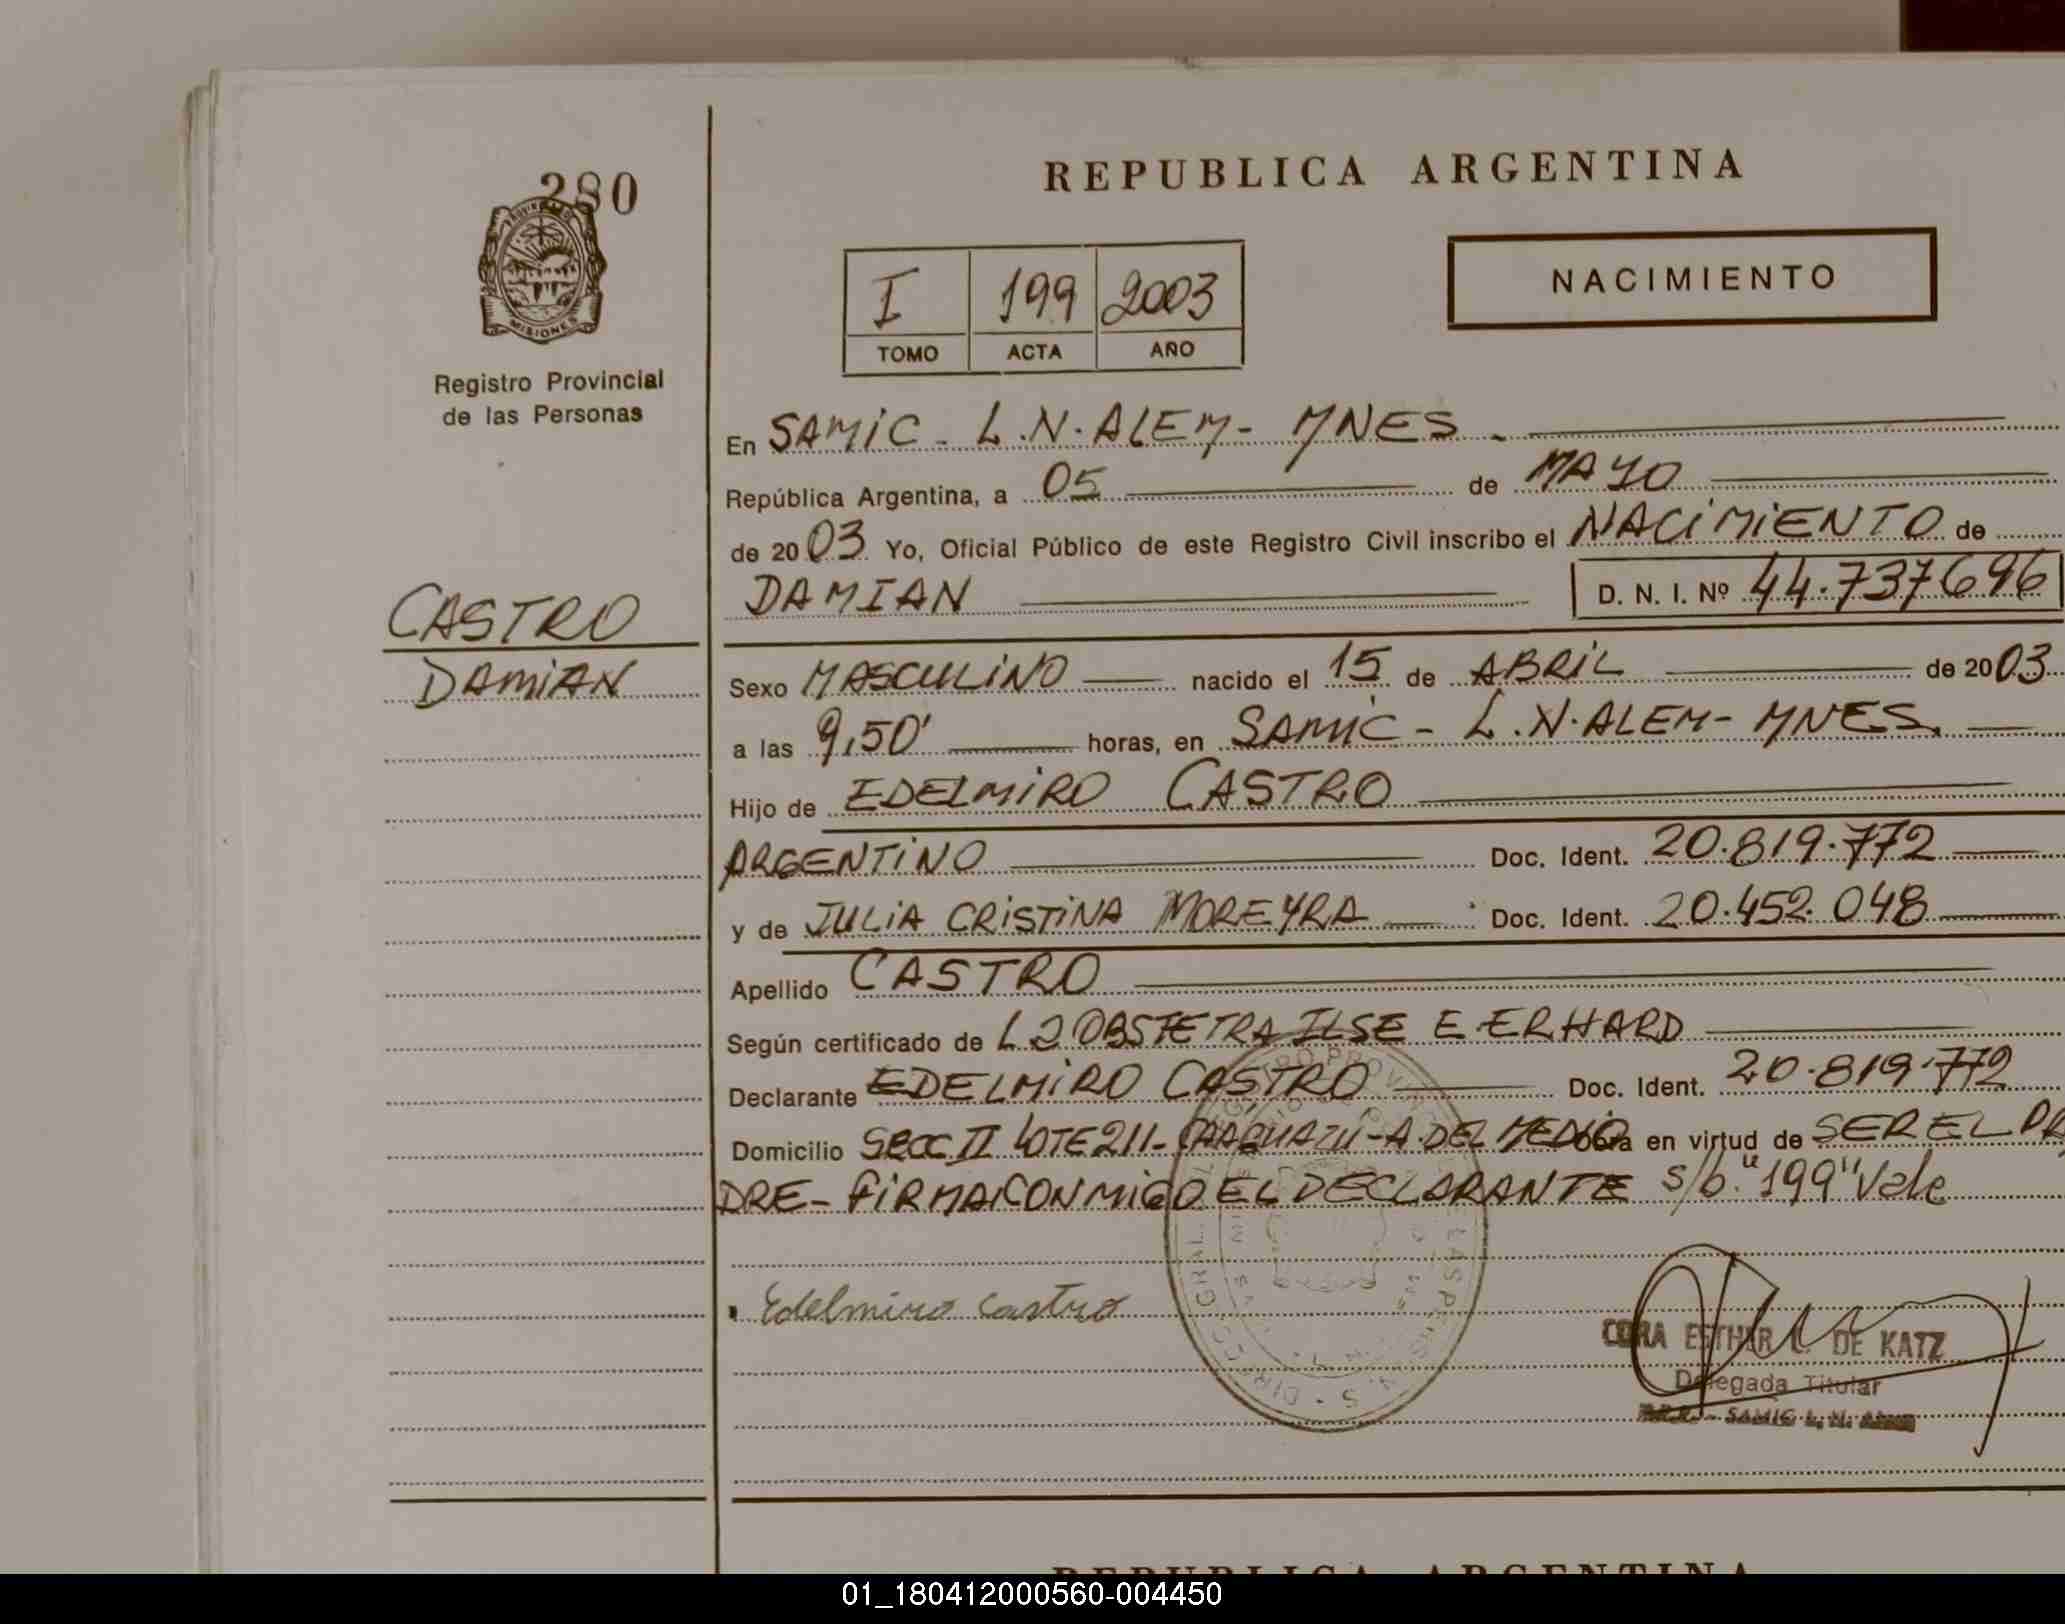 280
PROVINCIA DE
MISIONES
Registro Provincial
de las Personas
CASTRO
DAMIAN
REPUBLICA ARGENTINA
I 199 2003
TOMO ACTA AÑO
NACIMIENTO
En SAMIC - L.N. ALEM - MNES -
República Argentina, a 05 de MAYO
de 2003 Yo, Oficial Público de este Registro Civil inscribo el NACIMIENTO de
DAMIAN D. N. I. Nº 44.737696
Sexo MASCULINO nacido el 15 de ABRIL de 2003
a las 9,50' horas, en SAMIC - L.N. ALEM - MNES.
Hijo de EDELMIRO CASTRO
ARGENTINO Doc. Ident. 20.819.772
y de JULIA CRISTINA MOREYRA Doc. Ident. 20.452.048
Apellido CASTRO
Según certificado de LA OBSTETRA ILSE E. ERHARD
Declarante EDELMIRO CASTRO Doc. Ident. 20.819.772
Domicilio SECC II LOTE 211 - CAAGUAZÚ - A. DEL MEDIO obra en virtud de SER EL PA
DRE - FIRMA CONMIGO EL DECLARANTE s/b. "199" Vale
Edelmiro Castro
CORA ESTHER L. DE KATZ
Delegada Titular
SAMIC L. N. Alem
REPUBLICA ARGENTINA
01_180412000560-004450